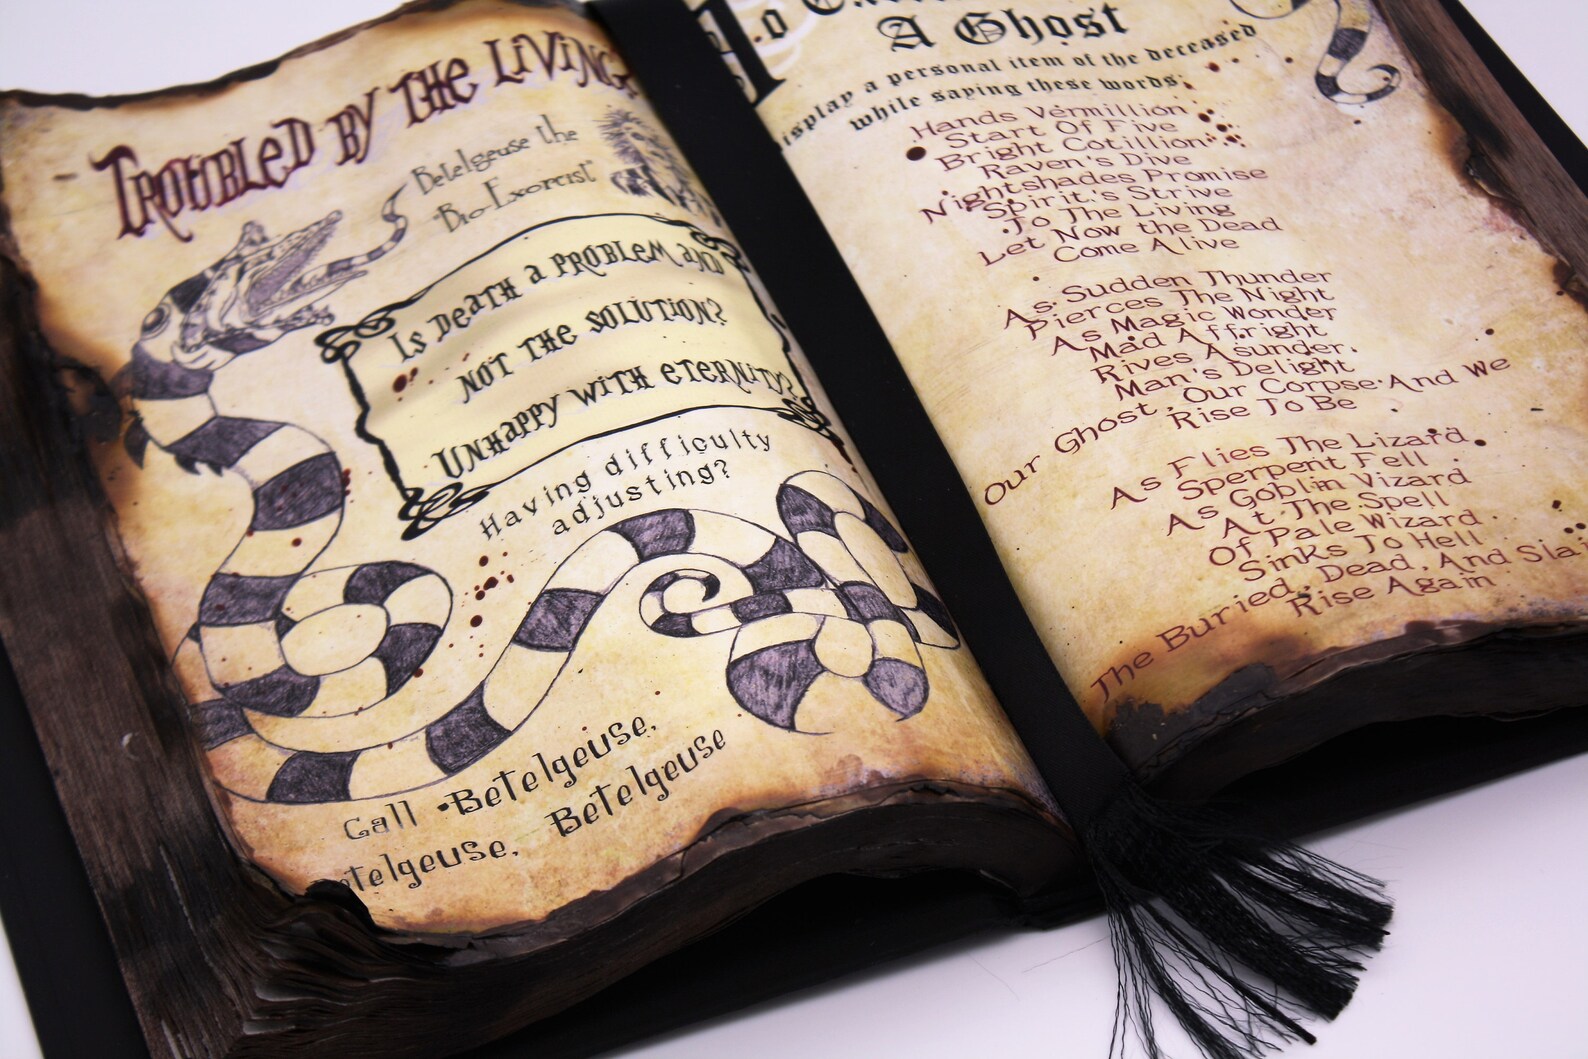 Troubled by the Living?
Betelgeuse the
"Bio-Exorcist"
Is Death a problem and
not the solution?
Unhappy with eternity?
Having difficulty
adjusting?
Call Betelgeuse,
Betelgeuse, Betelgeuse
A Ghost
Display a personal item of the deceased
while saying these words:
Hands Vermillion
Start Of Five
Bright Cotillion
Raven's Dive
Nightshades Promise
Spirit's Strive
To The Living
Let Now the Dead
Come Alive
As Sudden Thunder
Pierces The Night
As Magic Wonder
Mad Affright
Rives Asunder
Man's Delight
Our Ghost, Our Corpse And We
Rise To Be
As Flies The Lizard
Sperpent Fell
As Goblin Vizard
At The Spell
Of Pale Wizard
Sinks To Hell
The Buried, Dead, And Slain
Rise Again